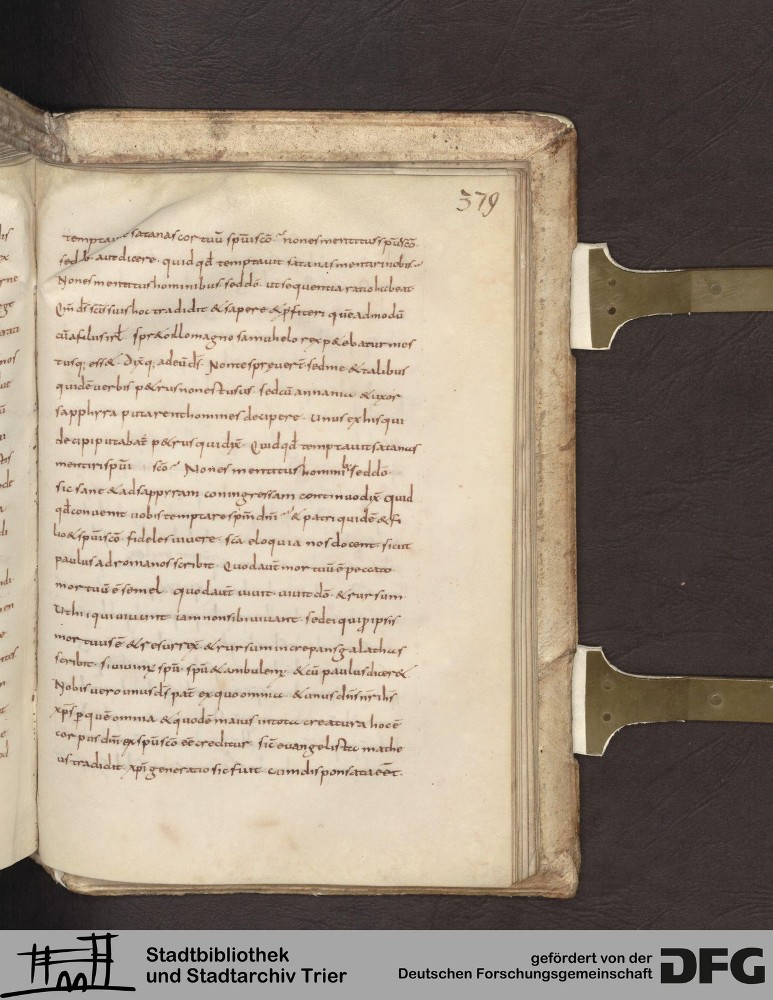 379
temptavit satanas cor tuū spm̄ scō non es mentitus spūscō
sed aut dicere quid qd temptavit satanas mentiri nobis
Non es mentitus hominibus sed dō ut sequentia ratio habeat
Qm̄ dī scī suis hoc tradidit & sapere & pfiteri quē admodū
cū israhel spr& o illo magno samuhelo rex p& ebatur mos
tusq; ess& Dixq; ad eū ds̄ Non te spreverт̄ sed me & talibus
quidē verbis p&rus non est usus sed cū annania & uxor
sapphyra putarent homines decipere unus ex his qui
decipi putabat̄ p&rus quid dix̄ Quid qd temptavit satanas
mentiri spūi scō Non es mentitus hominib; sed dō
sic sane & ad sapphyram coningressam continuo dix̄ quid
qd convenit vobis temptare spm̄ dnī & patri quidē & fi
lio & spūiscō fideles vivere scā eloquia nos docent sicut
paulus ad romanos scribit Quod aūt mortuū ē peccato
mortuū ē semel quod aūt vivit vivit dō & rursum
Ut hi qui vivunt iam non sibi vivant sed ei qui p ipsis
mortuus ē & resurrex̄ & rursum increpans galathas
scribit si vivimꝰ spū spū & ambulemꝰ & cū paulus dicer&
Nobis vero unus ds̄ pat̄ ex quo omnia & unus dns̄ nr̄ ihs̄
xps̄ p quē omnia & quod ē maius in tota creatura hoc ē
corpus dnī ex spūscō eē creditur sic evangelista mathe
us tradidit xpī generatio sic fuit cum disponsata eēt
Stadtbibliothek
und Stadtarchiv Trier
gefördert von der
Deutschen Forschungsgemeinschaft
DFG